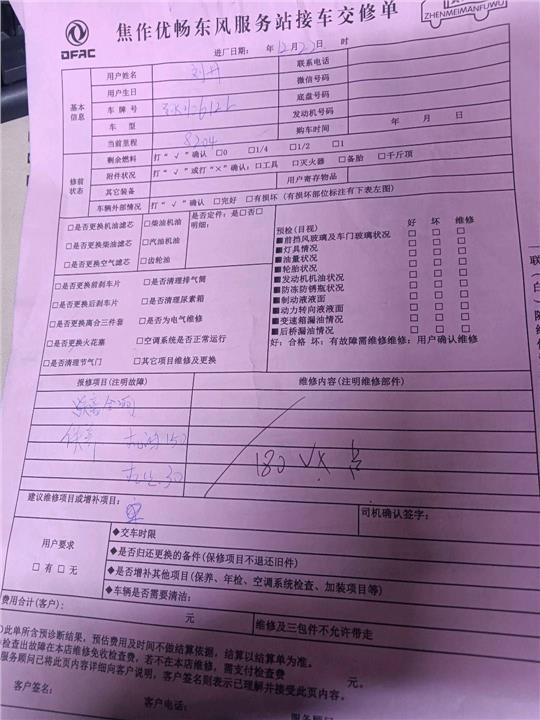 DFAC
焦作优畅东风服务站接车交修单
ZHENMEIMANFUWU
进厂日期: 年12月22日 时
基本信息
用户姓名 联系电话
用户生日 微信号码
车牌号 底盘号码
车 型 发动机号码
当前里程 8204 购车时间 年 月 日
修前状态
剩余燃料 打“√”确认 □0 □1/4 □1/2 □1
附件状况 打“√”或打“×”确认: □工具 □灭火器 □备胎 □千斤顶
其它装备 用户寄存物品
车辆外部情况 打“√”确认 □完好 □有损坏 (有损坏部位标注有下表左图)
□是否更换机油滤芯 □柴油机油 是否定件: 是□否□
□是否更换柴滤芯 □汽油机油 明细:
□是否更换空气滤芯 □齿轮油
□是否更换前刹车片 □是否清理排气筒
□是否更换后刹车片 □是否清理尿素箱
□是否更换离合三件套 □是否为电气维修
□是否更换火花塞 □空调系统是否正常运行
□是否清理节气门 □其它项目维修及更换
预检(目视) 好 坏 维修
■前挡风玻璃及车门玻璃状况 □ □ □
■灯具情况 □ □ □
■油量状况 □ □ □
■轮胎状况 □ □ □
■发动机机油状况 □ □ □
■防冻防锈瓶状况 □ □ □
■制动液液面 □ □ □
■动力转向液液面 □ □ □
■变速箱漏油情况 □ □ □
■后桥漏油情况 □ □ □
好: 合格 坏: 有故障需维修维修: 用户确认维修
报修项目(注明故障) 维修内容(注明维修部件)
180
建议维修项目或增补项目:
司机确认签字:
用户要求
□有 □无
◆交车时限
◆是否归还更换的备件(保修项目不退还旧件)
◆是否增补其他项目(保养、年检、空调系统检查、加装项目等)
◆车辆是否需要清洁:
费用合计(客户): 元 维修及三包件不允许带走
)此单所含预诊断结果, 预估费用及时间不做结算依据, 结算以结算单为准。
检查出故障在本店维修免收检查费, 若不在本店维修, 需支付检查费 元。
服务顾问已将此页内容详细向客户说明, 客户签名则表示已理解并接受此页内容。
客户签名:
客户电话:
服务顾问
联
白